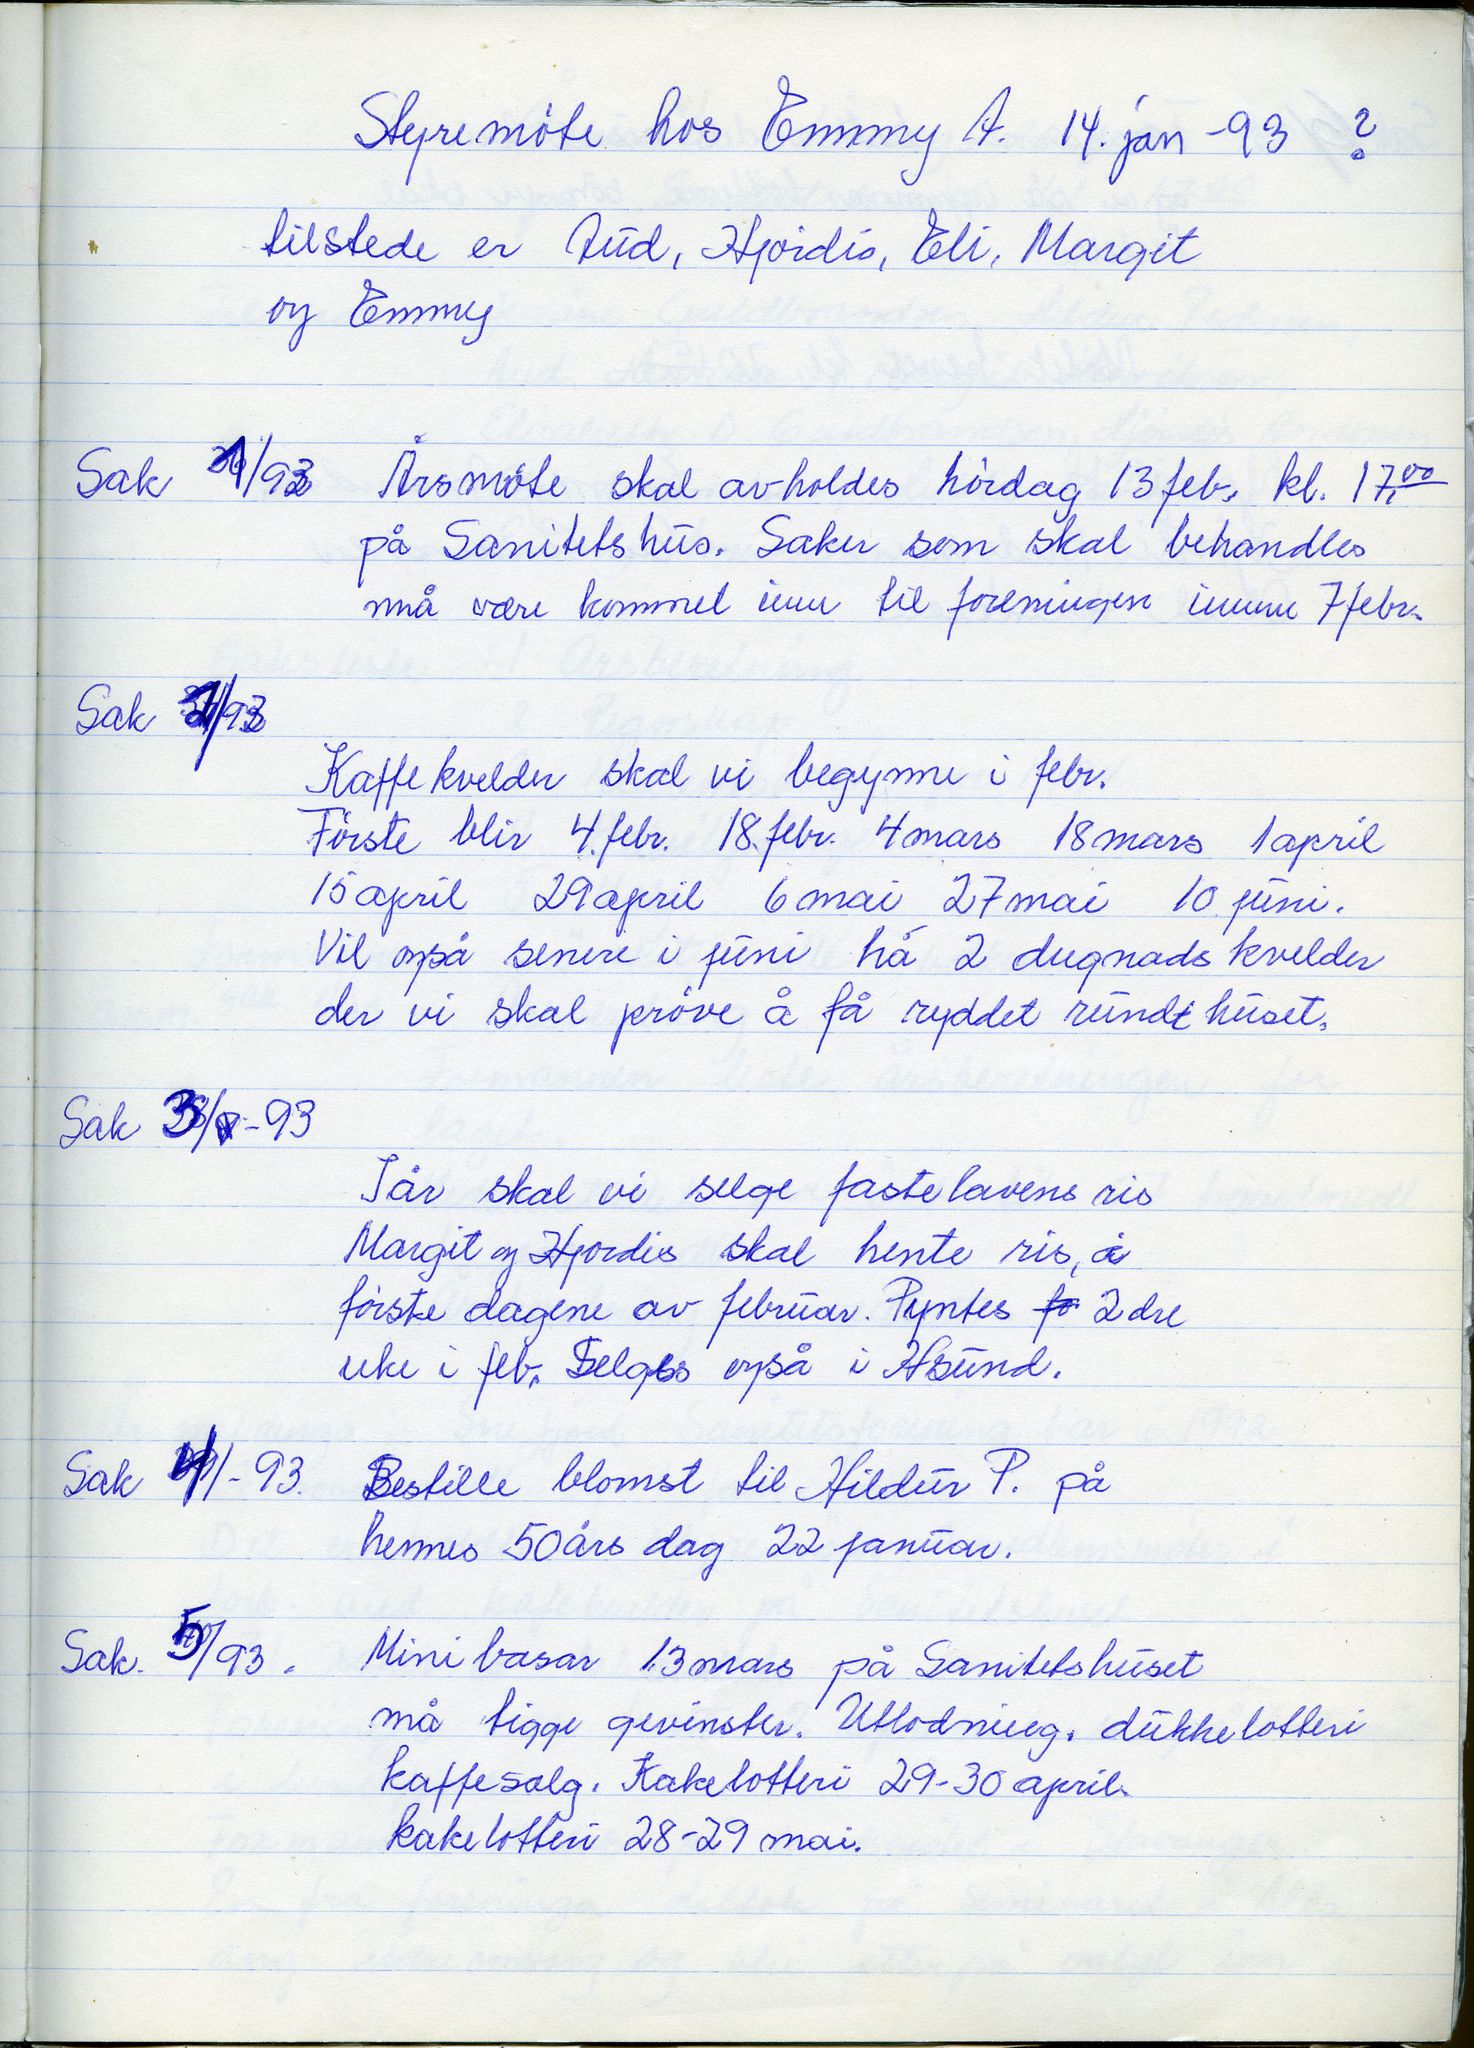 Styremöte hos Emmy A. 14. jan -93 ?
tilstede er Aud, Hjördis, Eli, Margit
og Emmy
Sak 1/93 Årsmöte skal avholdes lördag 13 feb. kl. 17,00
på Sanitetshus. Saker som skal behandles
må være kommet inn til foreningen innen 7 febr.
Sak 2/93
Kaffekvelder skal vi begynne i febr.
Förste blir 4. febr. 18. febr. 4 mars 18 mars 1 april
15 april 29 april 6 mai 27 mai 10 juni.
Vil også senere i juni ha 2 dugnads kvelder
der vi skal pröve å få ryddet rundt huset.
Sak 3/-93
I år skal vi selge fastelavens ris
Margit og Hjordis skal hente ris, i
förste dagene av februar. Pyntes 2 dre
uke i feb. Selges også i Ålsund.
Sak 4/-93. Bestille blomst til Hildur P. på
hennes 50 års dag 22 januar.
Sak. 5/93. Mini basar 13 mars på Sanitetshuset
må tigge gevinster. Utlodning. dukkelotteri
kaffesalg. Kakelotteri 29-30 april.
kakelotteri 28-29 mai.